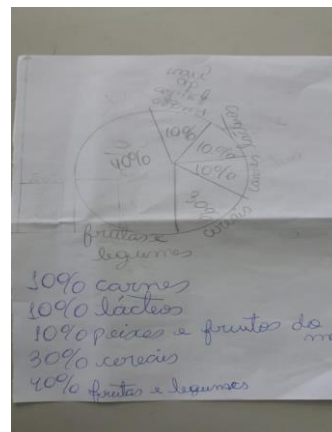 40%
10%
10%
10%
30%
frutas e
legumes
10% carnes
10% lácteos
10% peixes e frutos do
m
30% cereais
40% frutas e legumes